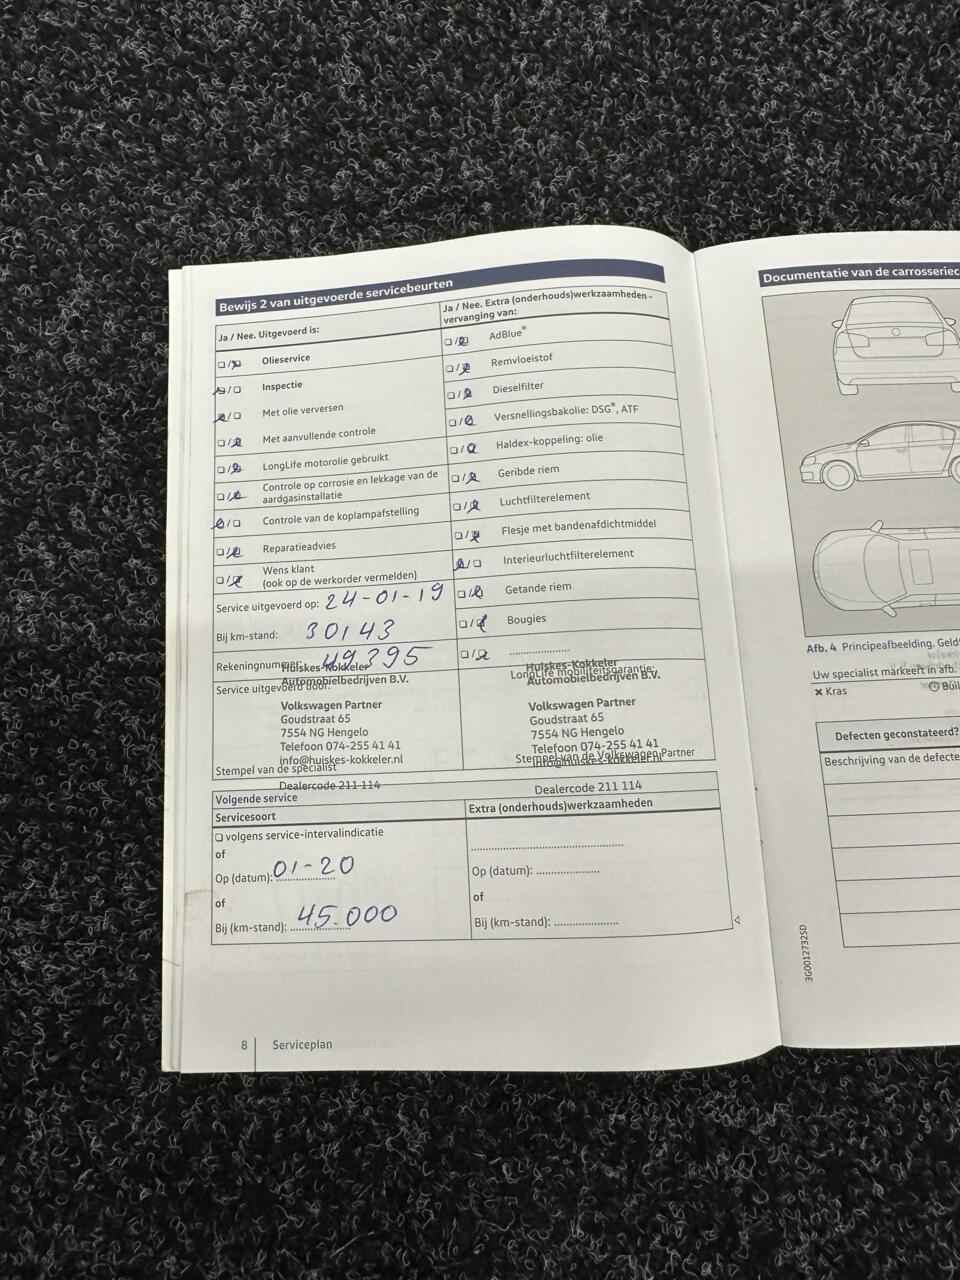 Bewijs 2 van uitgevoerde servicebeurten
Ja / Nee. Uitgevoerd is:
Olieservice
Inspectie
Met olie verversen
Met aanvullende controle
LongLife motorolie gebruikt
Controle op corrosie en lekkage van de
aardgasinstallatie
Controle van de koplampafstelling
Reparatieadvies
Wens klant
(ook op de werkorder vermelden)
Service uitgevoerd op: 24-01-19
Bij km-stand: 30143
Rekeningnummer: 49395
Ja / Nee. Extra (onderhouds)werkzaamheden -
vervanging van:
AdBlue®
Remvloeistof
Dieselfilter
Versnellingsbakolie: DSG®, ATF
Haldex-koppeling: olie
Geribde riem
Luchtfilterelement
Flesje met bandenafdichtmiddel
Interieurluchtfilterelement
Getande riem
Bougies
Service uitgevoerd door:
Huiskes-Kokkeler
Automobielbedrijven B.V.
Volkswagen Partner
Goudstraat 65
7554 NG Hengelo
Telefoon 074-255 41 41
info@huiskes-kokkeler.nl
Stempel van de specialist
Dealercode 211 114
LongLife mobiliteitsgarantie:
Huiskes-Kokkeler
Automobielbedrijven B.V.
Volkswagen Partner
Goudstraat 65
7554 NG Hengelo
Telefoon 074-255 41 41
Stempel van de Volkswagen Partner
info@huiskes-kokkeler.nl
Dealercode 211 114
Volgende service
Servicesoort
volgens service-intervalindicatie
of
Op (datum): 01-20
of
Bij (km-stand): 45.000
Extra (onderhouds)werkzaamheden
Op (datum):
of
Bij (km-stand):
8 Serviceplan
Documentatie van de carrosseriec
Afb. 4 Principeafbeelding. Geld
Uw specialist markeert in afb.
× Kras
Buil
Defecten geconstateerd?
Beschrijving van de defecte
3G0012732SD